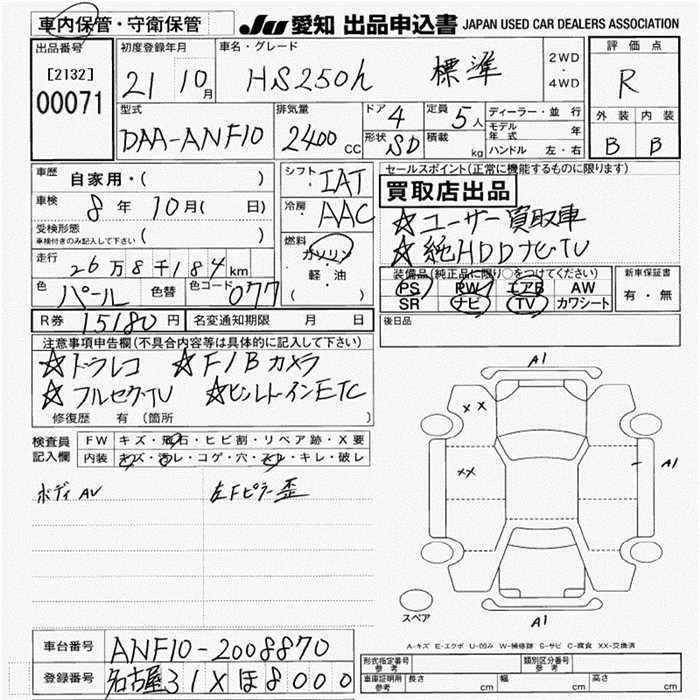 車内保管・守衛保管 JU 愛知 出品申込書 JAPAN USED CAR DEALERS ASSOCIATION
出品番号 初度登録年月 車名・グレード 評価点
[2132] 00071 21 10月 HS250h 標準 2WD・4WD R
型式 排気量 ドア 4 定員 5人 ディーラー・並行 外装 内装
DAA-ANF10 2400CC 形状 SD 積載 kg モデル年式 年 B B
ハンドル 左・右
車歴 自家用・( ) シフト IAT セールスポイント(正常に機能するものに限ります)
車検 8年 10月( 日) 冷房 AAC 買取店出品
受検形態 車検付きのみ記入して下さい ( ) ☆ユーザー買取車
燃料 ガソリン・軽・油 ( ) ☆純HDDナビTV
走行 26万8千184km 装備品(純正品に限り○をつけてください) 新車保証書
色 パール 色替 色コード 077 PS PW エアB AW 有・無
SR ナビ TV カワシート
R券 15180円 名変通知期限 月 日 後日品
注意事項申告欄(不具合内容等は具体的に記入して下さい)
☆ドラレコ ☆F/Bカメラ
☆フルセグTV ☆ビルトインETC
修復歴 有 (箇所 )
検査員記入欄 FW キズ・飛石・ヒビ割・リペア跡・X要
内装 キズ・汚レ・コゲ・穴・スレ・キレ・破レ
ボディAV 左Fピラー歪
A1
XX
XX
A1
A1
スペア
A-キズ E-エクボ U-凹み W-補修跡 S-サビ C-腐食 XX-交換済
車台番号 ANF10-2008870
登録番号 名古屋31Xほ8000
形式指定番号 参考 類別区分番号 参考
車庫証明用 参考 長さ cm 幅 cm 高さ cm